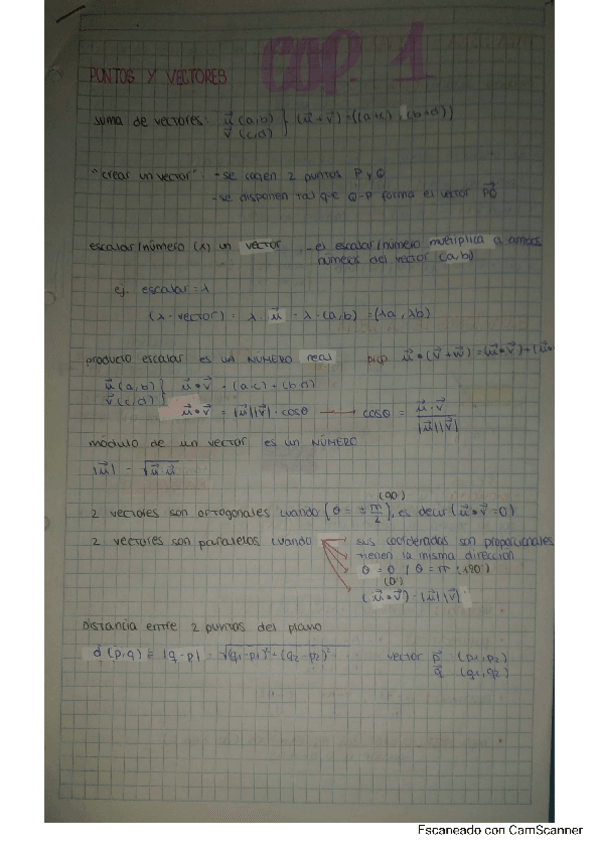 COP. 1
PUNTOS Y VECTORES
suma de vectores: u⃗ (a,b) } (u⃗ + v⃗) = ((a+c) , (b+d))
v⃗ (c,d)
"crear un vector" - se cogen 2 puntos P y Q
- se disponen tal q-e Q-P forma el vector PQ⃗
escalar/número (λ) un vector - el escalar/número multiplica a ambos
números del vector (a,b)
ej. escalar = λ
(λ · vector) = λ · u⃗ = λ · (a,b) = (λa , λb)
producto escalar ES UN NUMERO real prop. u⃗ • (v⃗ + w⃗) = (u⃗ • v⃗) + (u⃗ •
u⃗ (a,b) } u⃗ • v⃗ = (a·c) + (b·d)
v⃗ (c,d)
u⃗ • v⃗ = |u⃗||v⃗| · cosθ → cosθ = u⃗ · v⃗ / |u⃗||v⃗|
módulo de un vector es un NÚMERO
|u⃗| = √u⃗ · u⃗
(90)
2 vectores son ortogonales cuando (θ = ± π/2), es decir (u⃗ • v⃗ = 0)
2 vectores son paralelos cuando sus coordenadas son proporcionales
tienen la misma dirección
θ = 0 / θ = π (180°)
(0°)
(u⃗ • v⃗) = |u⃗||v⃗|
Distancia entre 2 puntos del plano
d (p,q) = |q - p| = √(q₁ - p₁)² + (q₂ - p₂)² vector p⃗ (p₁, p₂)
q⃗ (q₁, q₂)
Escaneado con CamScanner